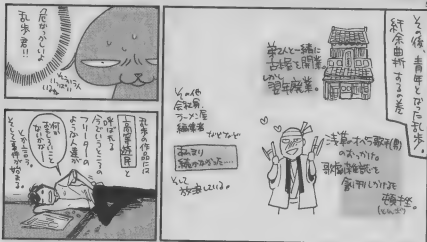 その後、青年となった乱歩。
紆余曲折するの巻
弟2人と一緒に
古書店を開業
しかし
翌年廃業。
浅草のオペラ歌手(男)
のおっかけ。
歌劇雑誌を
創刊しかけるも
頓挫。
(とんざ)
その他
会社員、
ラーメン屋
編集者
などなど
あんまり
続かなかった…
そして
放浪している。
危なっかしいよ
乱歩君!!
そういう人
いっぱい
いるね
乱歩の作品には
高等遊民と
呼ばれる
今でいうところの
フリーターの
ような人達が
何か
おもしろいこと
ないかなー
とかいって
そして事件が始まる。